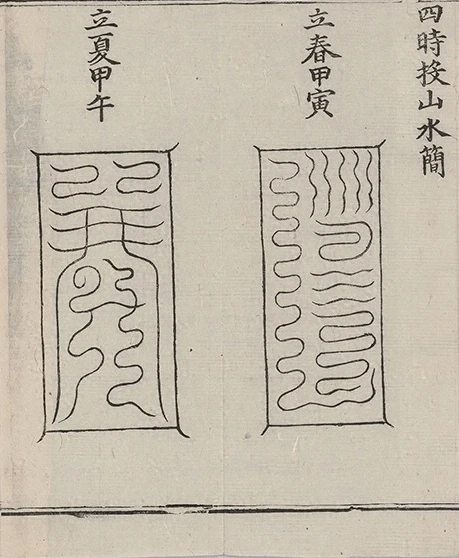 四時投山水簡
立春甲寅
立夏甲午